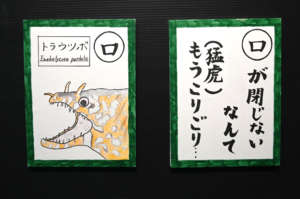 口
トラウツボ
Enchelycore pardalis
口
が閉じない
なんて
(猛虎)
もうこりごり…